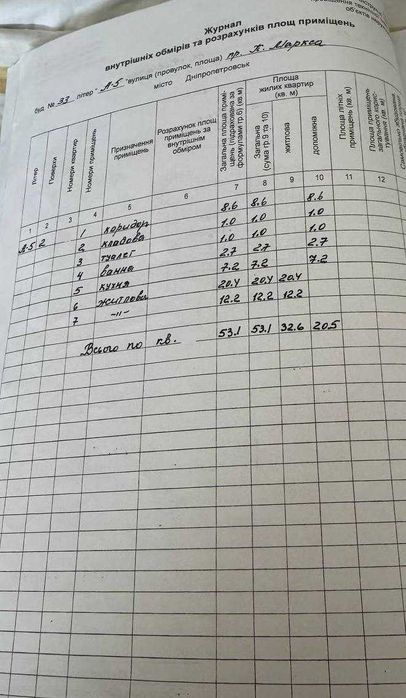 Журнал
внутрішніх обмірів та розрахунків площ приміщень
буд. № 33 літер "А-5" вулиця (провулок, площа) пр. К. Маркса
місто Дніпропетровськ
Літер
Поверхи
Номери квартир
Номери приміщень
Призначення приміщень
Розрахунок площ приміщень за внутрішнім обміром
Загальна площа приміщень (підрахована за формулами гр.6) (кв.м)
Площа жилих квартир (кв. м)
Загальна (сума гр.9 та 10)
житлова
допоміжна
Площа літніх приміщень (кв. м)
Площа приміщень загального користування (кв. м)
1 2 3 4 5 6 7 8 9 10 11 12
А-5 2 1 коридор 8.6 8.6 8.6
2 кладова 1.0 1.0 1.0
3 туалет 1.0 1.0 1.0
4 ванна 2.7 2.7 2.7
5 кухня 7.2 7.2 7.2
6 житлова 20.4 20.4 20.4
7 -"- 12.2 12.2 12.2
Всього по кв. 53.1 53.1 32.6 20.5